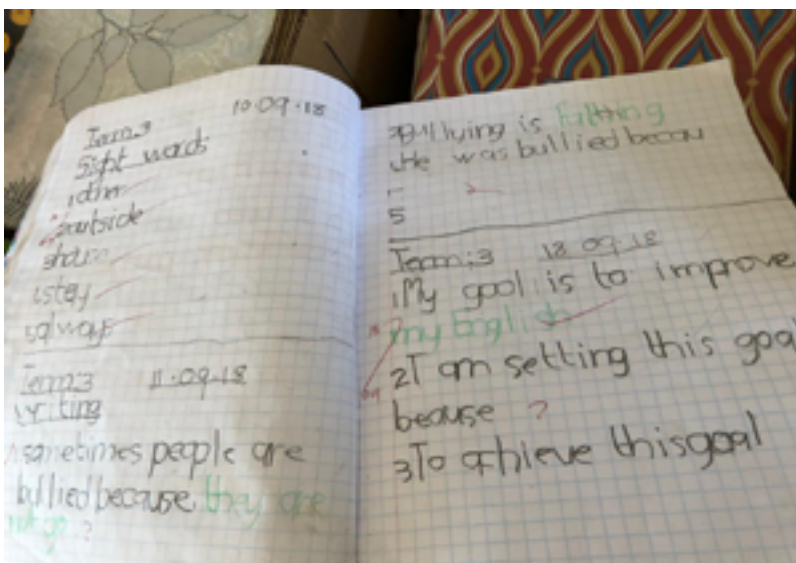 Term:3 10.09.18
Sight words
2outside
4stay
5always
Term:3 11.09.18
writing
1sometimes people are
bullied because they are
not go ?
2Bullying is
He was bullied becau
5
Term:3 18.09.18
1My goal is to improve
my English
2I am setting this goal
beause ?
3To achieve thisgoal